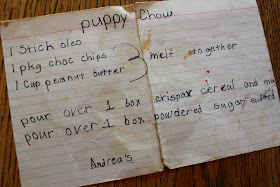 puppy Chow
1 Stick oleo
1 pkg choc chips
1 Cup peanut butter
melt together
pour over 1 box crispax cereal and mix
pour over 1 box powdered sugar
Andrea's